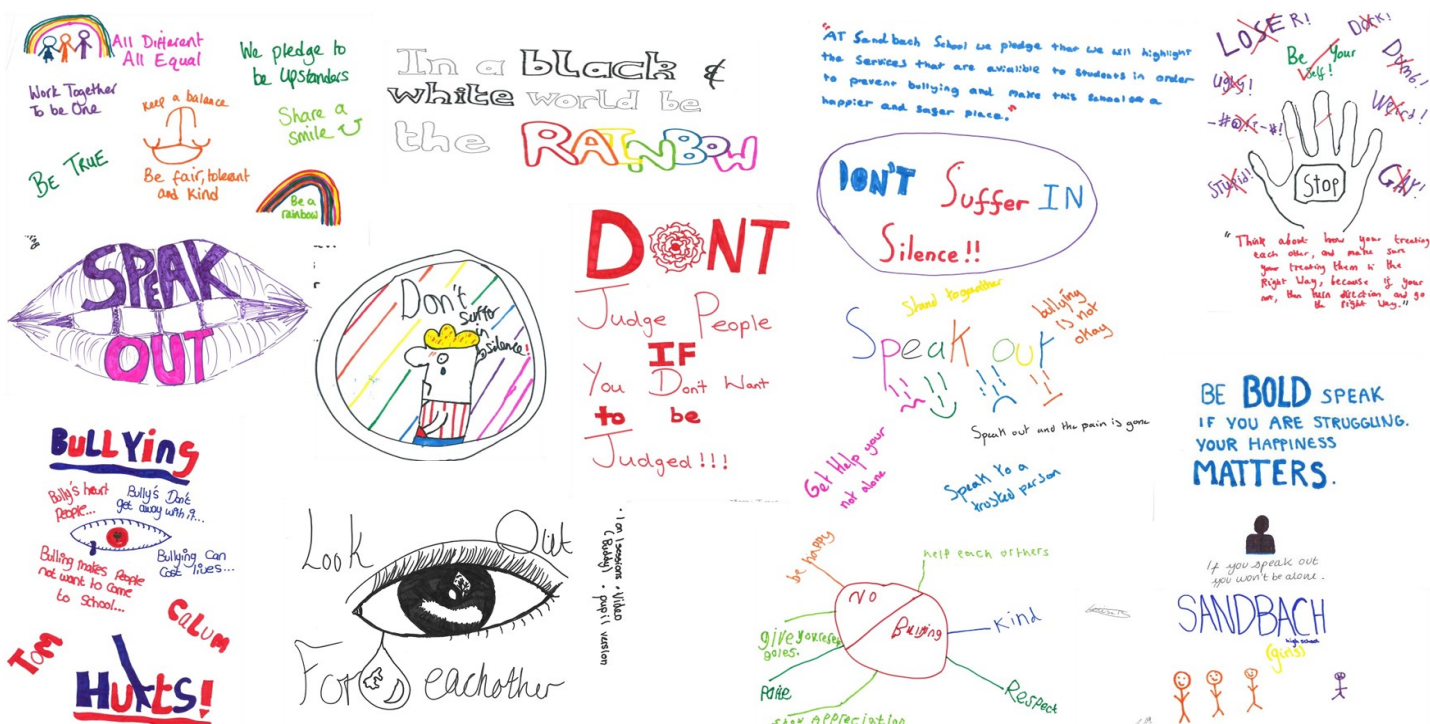 All Different
All Equal
We pledge to
be Upstanders
Work Together
To be One
Keep a balance
Share a
smile
BE TRUE
Be fair, tolerant
and Kind
Be a
rainbow
In a black &
white world be
the RAINBOW
"AT Sandbach School we pledge that we will highlight
the Services that are avialible to students in order
to prevent bullying and make this school a
happier and safer place."
LOSER!
DORK!
Be Your
Self!
Dumb!
Ugly!
Weird!
-#@!?-#!
STOP
Stupid!
GAY!
"Think about how your treating
each other, and make sure
your treating them in the
Right Way, because if your
not, then turn direction and go
the right way."
SPEAK
OUT
Don't
suffer
in
silence!
DONT
Judge People
IF
You Dont Want
to be
Judged!!!
DON'T Suffer IN
Silence!!
Stand together
bullying
is not
okay
Speak out
Speak out and the pain is gone
Get Help your
not alone
Speak to a
trusted person
BE BOLD SPEAK
IF YOU ARE STRUGGLING.
YOUR HAPPINESS
MATTERS.
BULLYing
Bully's heart
People...
Bully's Don't
get away with it...
Bulling makes People
not want to come
to School...
Bullying Can
Cost lives...
TOM
CALUM
HUrts!
Look Out
For eachother
• 1 on 1 sessions • Video
(Buddy) • pupil version
be happy
help each orthers
NO
Bullying
give yourself
goles.
Kind
Polite
Respect
Show Appreciation
If you speak out
you won't be alone.
SANDBACH
high school
(girls)